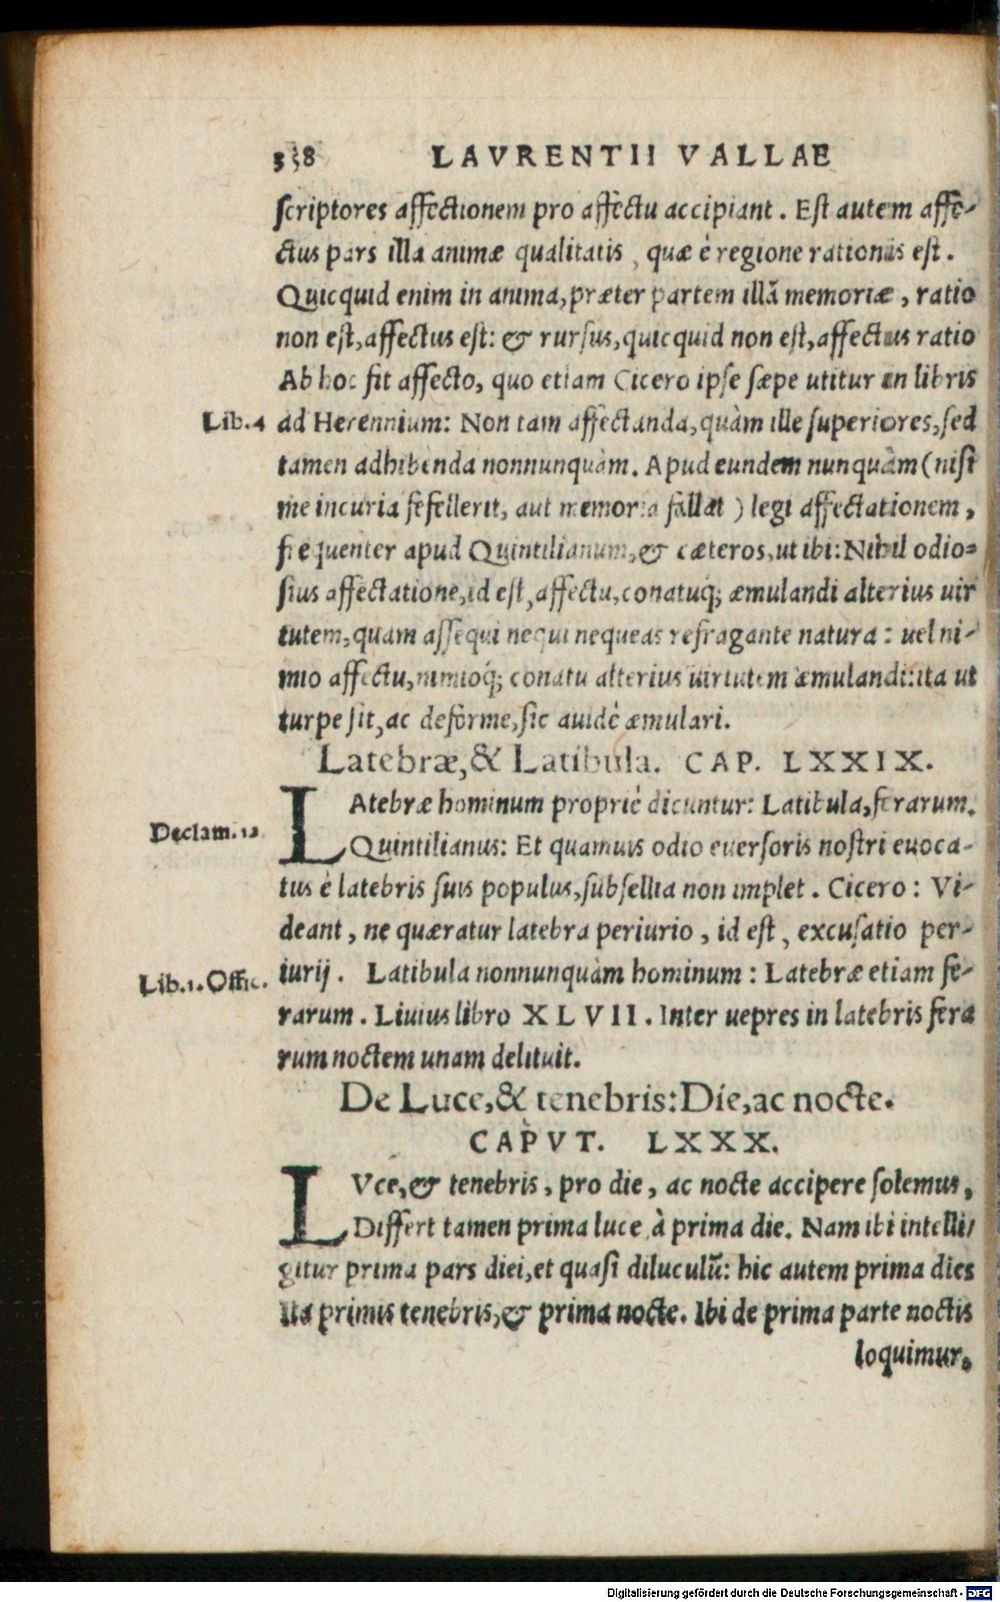 338 LAVRENTII VALLAE
scriptores affectionem pro affectu accipiant. Est autem affe-
ctus pars illa animæ qualitatis, quæ è regione rationis est.
Quicquid enim in anima, præter partem illã memoriæ, ratio
non est, affectus est: & rursus, quicquid non est, affectus ratio
Ab hoc fit affecto, quo etiam Cicero ipse sæpe utitur in libris
Lib. 4 ad Herennium: Non tam affectanda, quàm ille superiores, sed
tamen adhibenda nonnunquàm. Apud eundem nunquàm (nisi
me incuria fefellerit, aut memoria fallat) legi affectationem,
frequenter apud Quintilianum, & cæteros, ut ibi: Nihil odio-
sius affectatione, id est, affectu, conatuq; æmulandi alterius uir
tutem, quam assequi nequi nequeas refragante natura: uel ni-
mio affectu, nimioq́; conatu alterius uirtutem æmulandi: ita ut
turpe sit, ac deforme, sic auidè æmulari.
Latebræ, & Latibula. CAP. LXXIX.
LAtebræ hominum propriè dicuntur: Latibula, ferarum.
Declam. 12 Quintilianus: Et quamuis odio euersoris nostri euoca-
tus è latebris suis populus, subsellia non implet. Cicero: Vi-
deant, ne quæratur latebra periurio, id est, excusatio per-
Lib. 1. Offic. iurij. Latibula nonnunquàm hominum: Latebræ etiam fe-
rarum. Liuius libro XLVII. Inter uepres in latebris fera
rum noctem unam delituit.
De Luce, & tenebris: Die, ac nocte.
CAPVT. LXXX.
LVce, & tenebris, pro die, ac nocte accipere solemus,
Differt tamen prima luce, à prima die. Nam ibi intelli-
gitur prima pars diei, et quasi diluculũ: hic autem prima dies
Ita primis tenebris, & prima nocte. Ibi de prima parte noctis
loquimur,
Digitalisierung gefördert durch die Deutsche Forschungsgemeinschaft - DFG